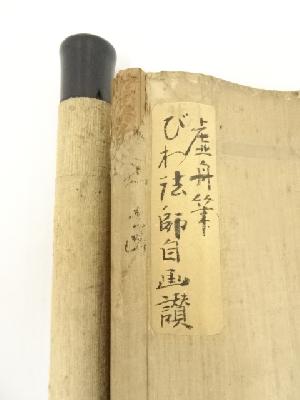 虚舟筆
びわ法師自画讃